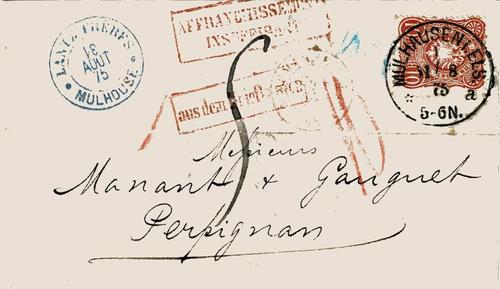 LANTZ FRERES
18
AOUT
75
MULHOUSE
AFFRANCHISSEMENT
aus dem Briefkasten
MÜLHAUSEN i/ELS
8
75
a
5-6N.
10
5
Messieurs
Manant & Gauguet
Perpignan